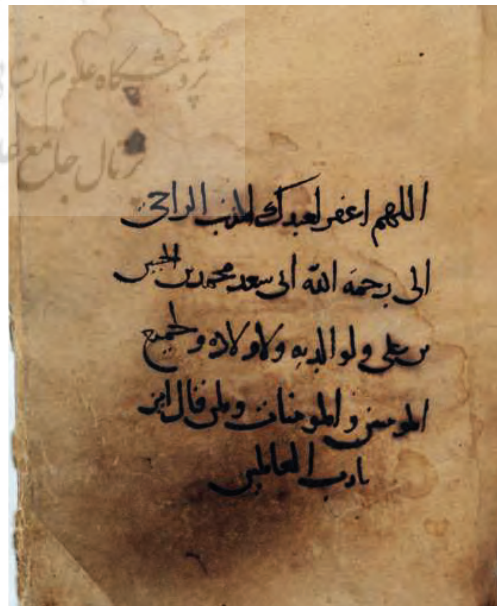 پژوهشگاه علوم انسانی
پرتال جامع علوم
اللهم اغفر لعبدك المذنب الراجي
الى رحمة الله ابى سعد محمد بن الحسين
بن على ولوالديه ولاولاده ولجميع
المومنين والمومنات ولمن قال امين
يا رب العالمين